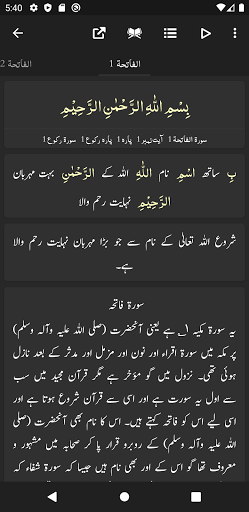 5:40
الفاتحة 1
الفاتحة 2
بِسْمِ اللّٰهِ الرَّحْمٰنِ الرَّحِيْمِ
سورة الفاتحة 1 آیت نمبر 1 پارہ 1 پارہ رکوع 1 سورۃ رکوع 1
بِ ساتھ اسْمِ نام اللّٰهِ اللہ کے الرَّحْمٰنِ بہت مہربان
الرَّحِيْمِ نہایت رحم والا
شروع اللہ تعالٰی کے نام سے جو بڑا مہربان نہایت رحم والا
ہے۔
سورۃ فاتحہ
یہ سورۃ مکیہ ا؎ ہے یعنی آنحضرت (صلی اللہ علیہ وآلہ وسلم)
پر مکہ میں سورۃ اقراء اور نون اور مزمل اور مدثر کے بعد نازل
ہوئی تھی۔ نزول میں گو مؤخر ہے مگر قرآن مجید میں سب
سے اول یہ سورت ہے اور اسی سے قرآن شروع ہوتا ہے اور
اسی لیے اس کو فاتحہ کہتے ہیں۔ اس کا نام بھی آنحضرت (صلی
اللہ علیہ وآلہ وسلم) کے روبرو قرار پا کر صحابہ میں مشہور و
معروف تھا گو اس کے اور بھی نام ہیں جیسا کہ سورۃ شفاء کہ